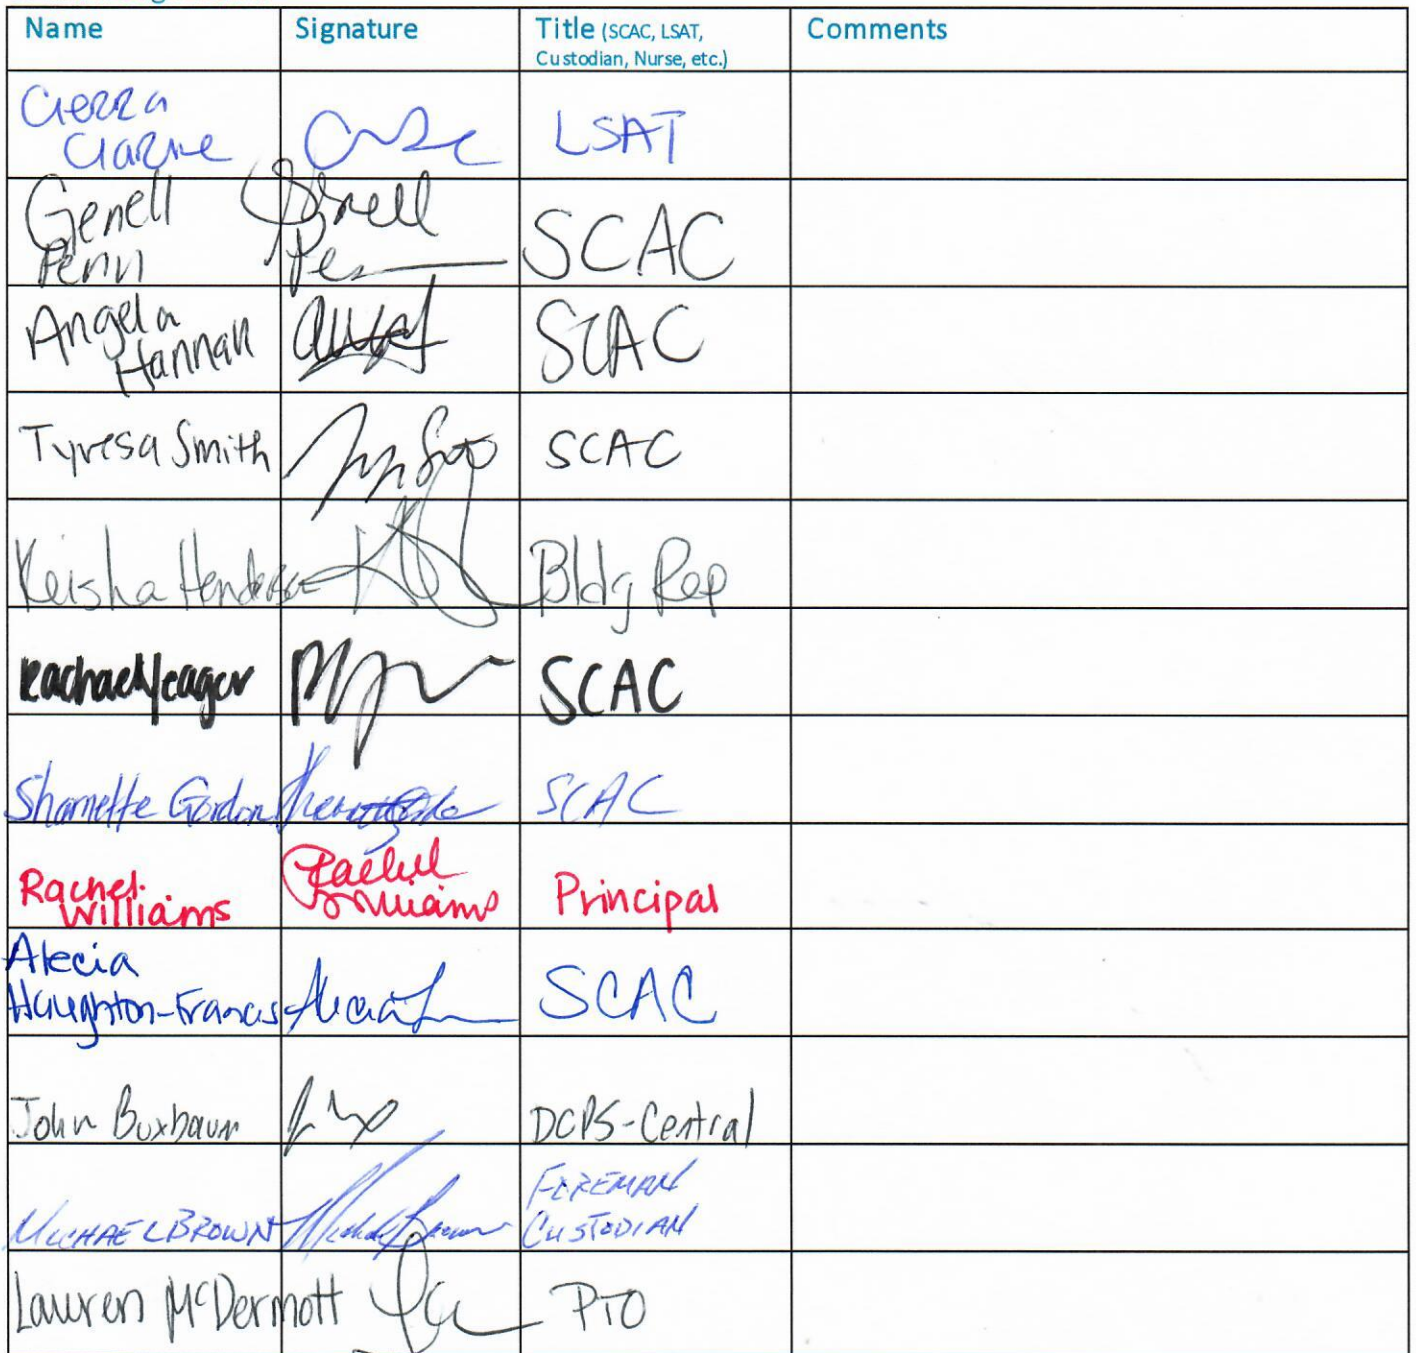 Name Signature Title (SCAC, LSAT, Comments
Custodian, Nurse, etc.)
Cierra
LSAT
Genell Genell
Penn SCAC
Angela
Hannah SCAC
Tyresa Smith SCAC
Keisha Henderson Bldg Rep
Rachael Yeager SCAC
Sharnette Gordon SCAC
Rachel Rachel
Williams Williams Principal
Alecia
Haughton-Francis SCAC
John Buxbaum DCPS-Central
FOREMAN
MICHAEL BROWN CUSTODIAN
Lauren McDermott PTO